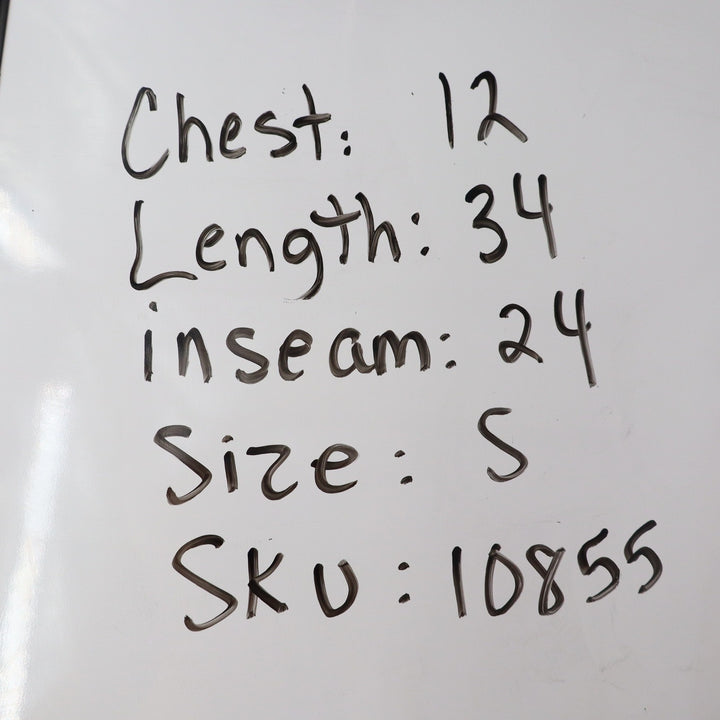 Chest: 12
Length: 34
inseam: 24
Size: S
SKU: 10855